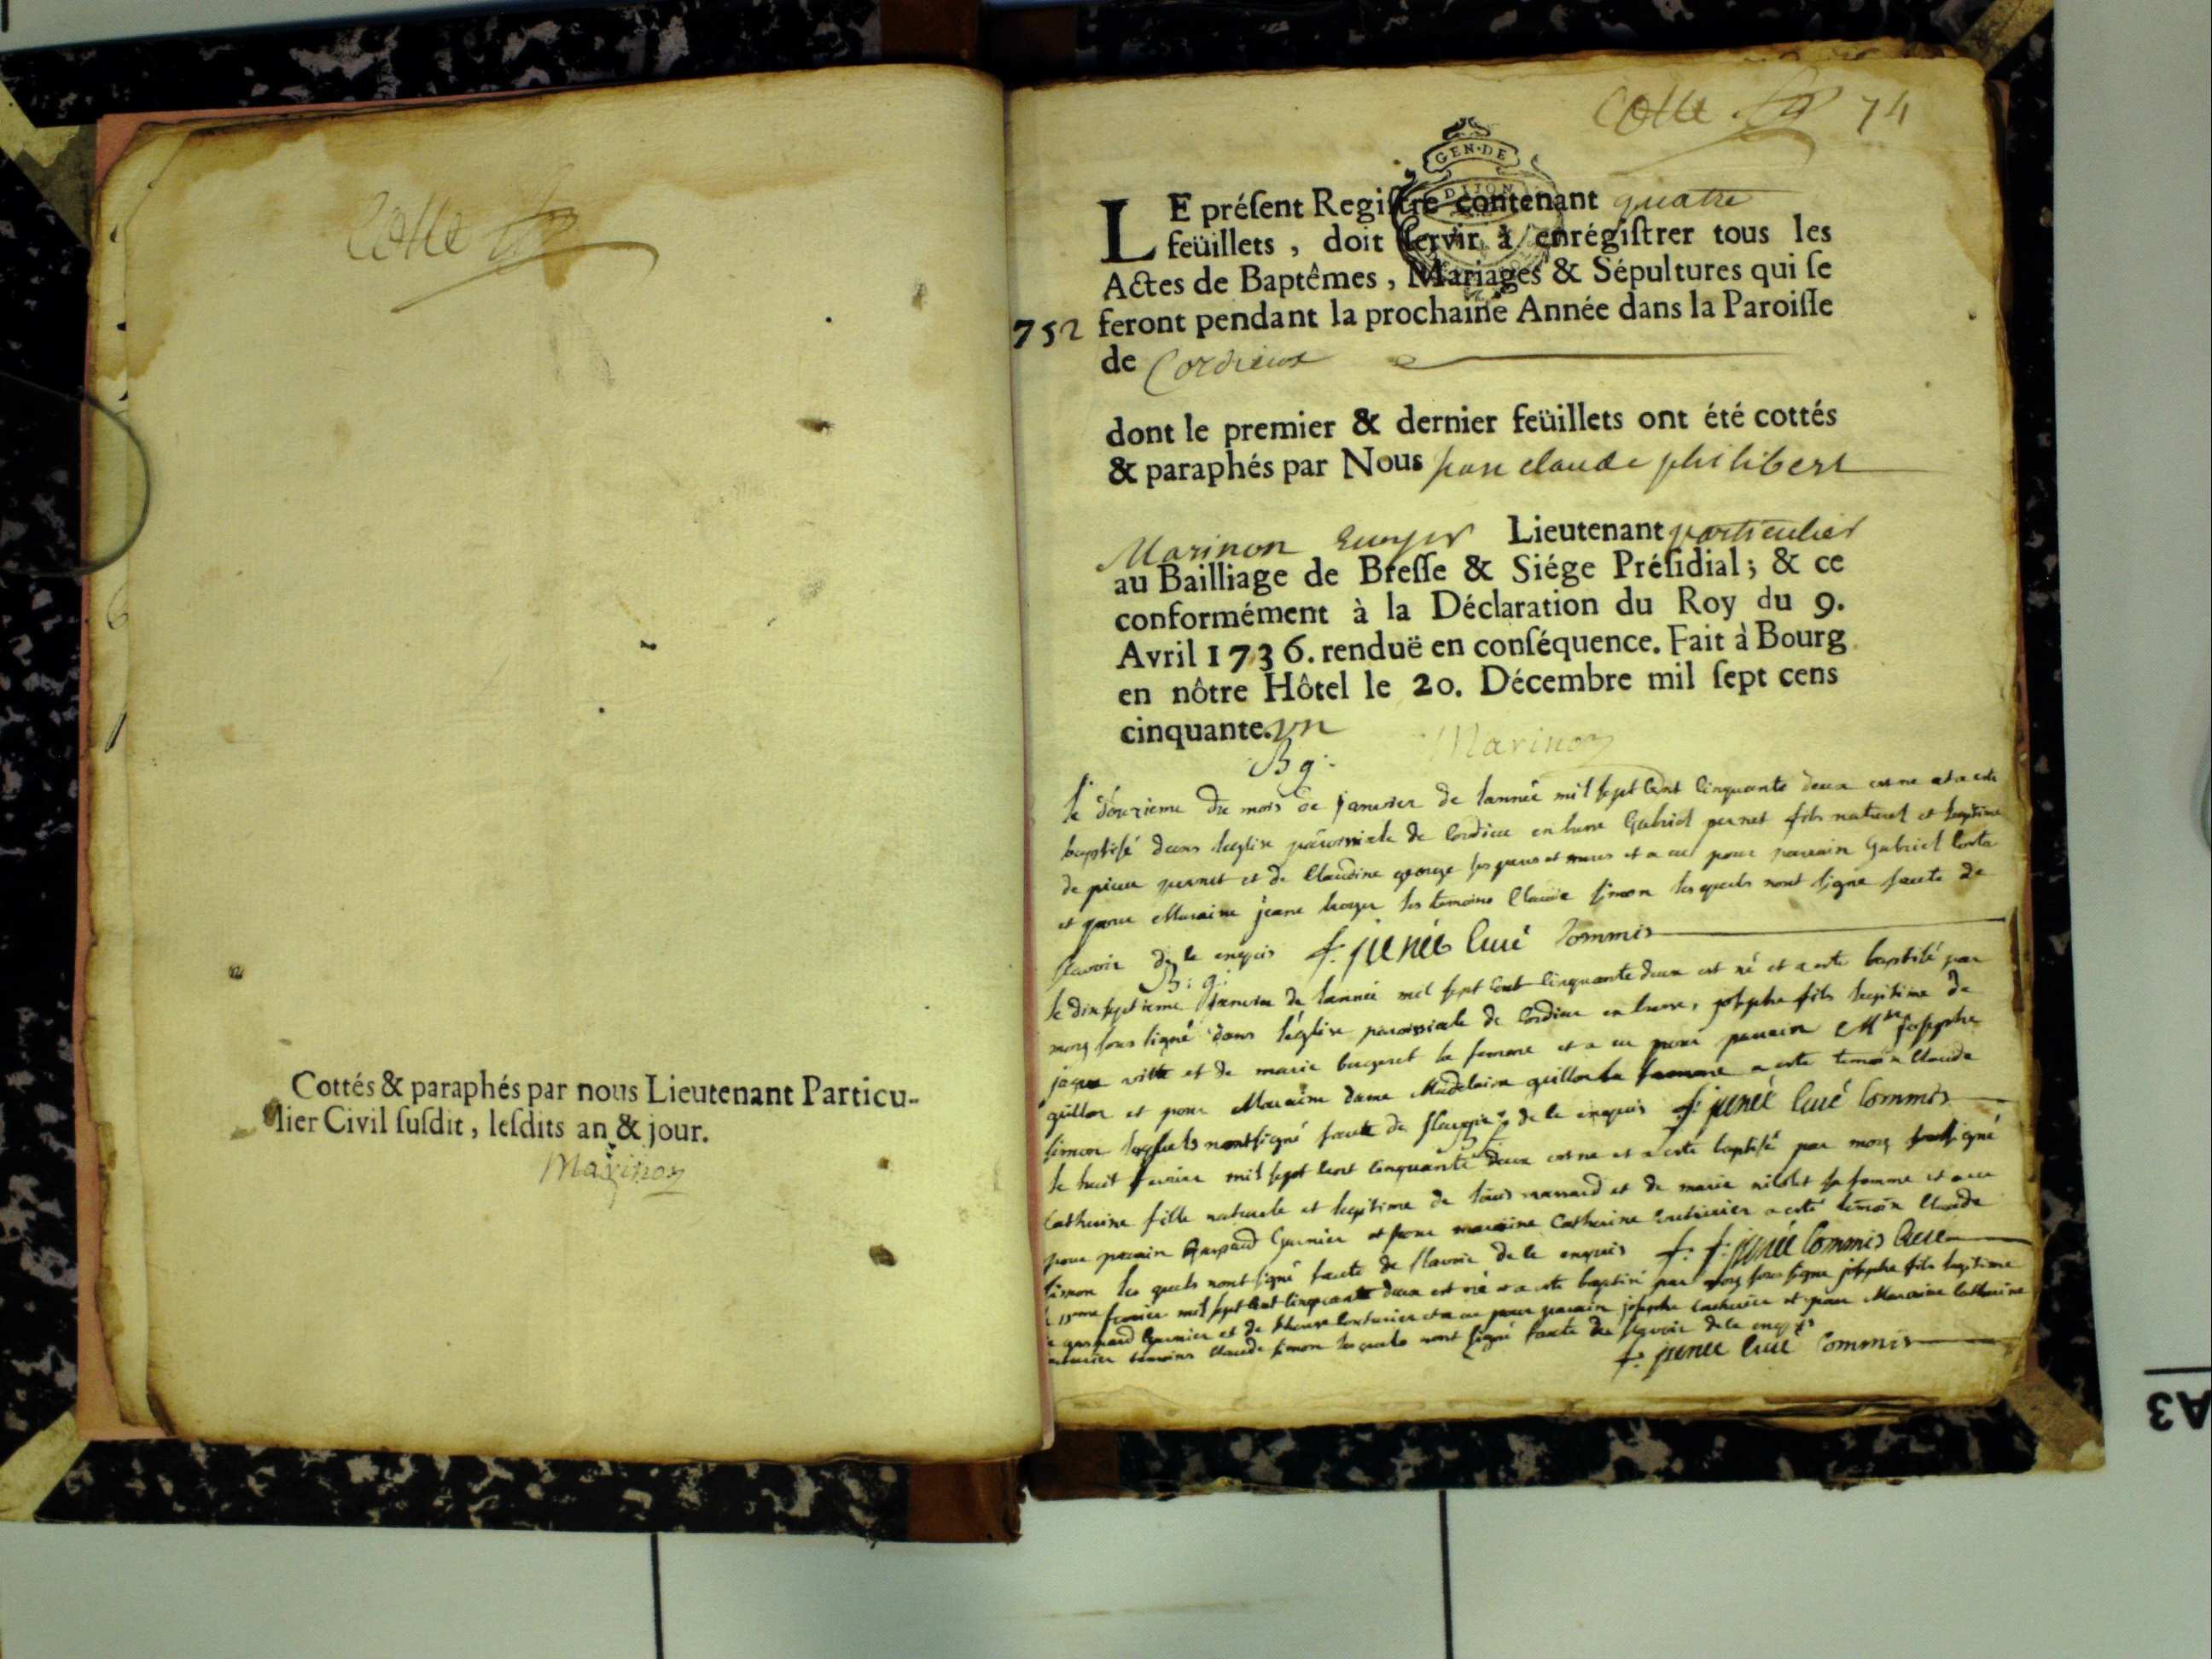 Cotte
Cottés & paraphés par nous Lieutenant Particu-
lier Civil ſuſdit, leſdits an & jour.
Marinon
Cotte 74
GEN·DE
DIJON
LE préſent Regiſtre contenant quatre
feüillets, doit ſervir à enrégiſtrer tous les
Actes de Baptêmes, Mariages & Sépultures qui ſe
752 feront pendant la prochaine Année dans la Paroiſſe
de Cordieux
dont le premier & dernier feüillets ont été cottés
& paraphés par Nous jean claude philibert
Marinon Lieutenant particulier
au Bailliage de Breſſe & Siége Préſidial; & ce
conformément à la Déclaration du Roy du 9.
Avril 1736. renduë en conſéquence. Fait à Bourg
en nôtre Hôtel le 20. Décembre mil ſept cens
cinquante. un
Marinon
B g:
le douzieme du mois de janvier de lannée mil sept Cent Cinquante deux est ne et a este
baptisé dans leglise paroissiale de Cordieu en bresse Gabriel pernet fils naturel et legitime
de pierre pernet et de Claudine george ses peres et meres et a eu pour parrain Gabriel
et pour Maraine jeane les temoins Claude simon les quels nont signe faute de
scavoir de le enquis f. junée Curé Commis
B: g:
le dixseptieme janvier de lannée mil sept Cent Cinquante deux est né et a este baptisé par
moy sous signé dans léglise paroissiale de Cordieu en bresse, josephe fils legitime de
jaque vitte et de marie bergeret sa femme et a eu pour parrain Mre josephe
guillon et pour Maraine dame Madelaine guillon a este temoin Claude
simon lesquels nont signé faute de scavoir de le enquis f. junée Curé Commis
le huit fevrier mil sept Cent Cinquante deux est ne et a este baptisé par moy signé
Catherine fille naturele et legitime de louis et de marie nicolet sa femme et a eu
pour parain Gaspard Garnier et pour maraine Catherine Couturier a esté temoin Claude
simon les quels nont signé faute de scavoir de le enquis f. f. junée Commis Curé
15me fevrier mil sept Cent Cinquante deux est né et a este baptisé par moy sous signe josephe fils legitime
gaspard Garnier et de Couturier et a eu pour parain josephe Couturier et pour Maraine Catherine
temoins Claude simon les quels nont signé faute de scavoir de le enquis
f. junée Curé Commis
A3